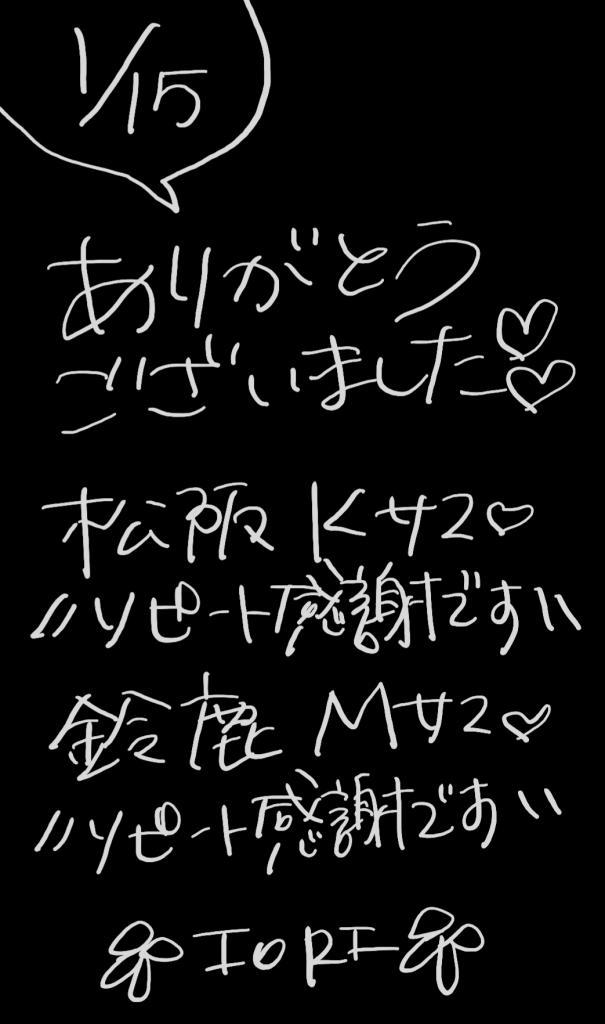 1/15
ありがとう
ございました♡♡
松阪 Kサマ♡
〃リピート感謝です〃
鈴鹿 Mサマ♡
〃リピート感謝です〃
IORI